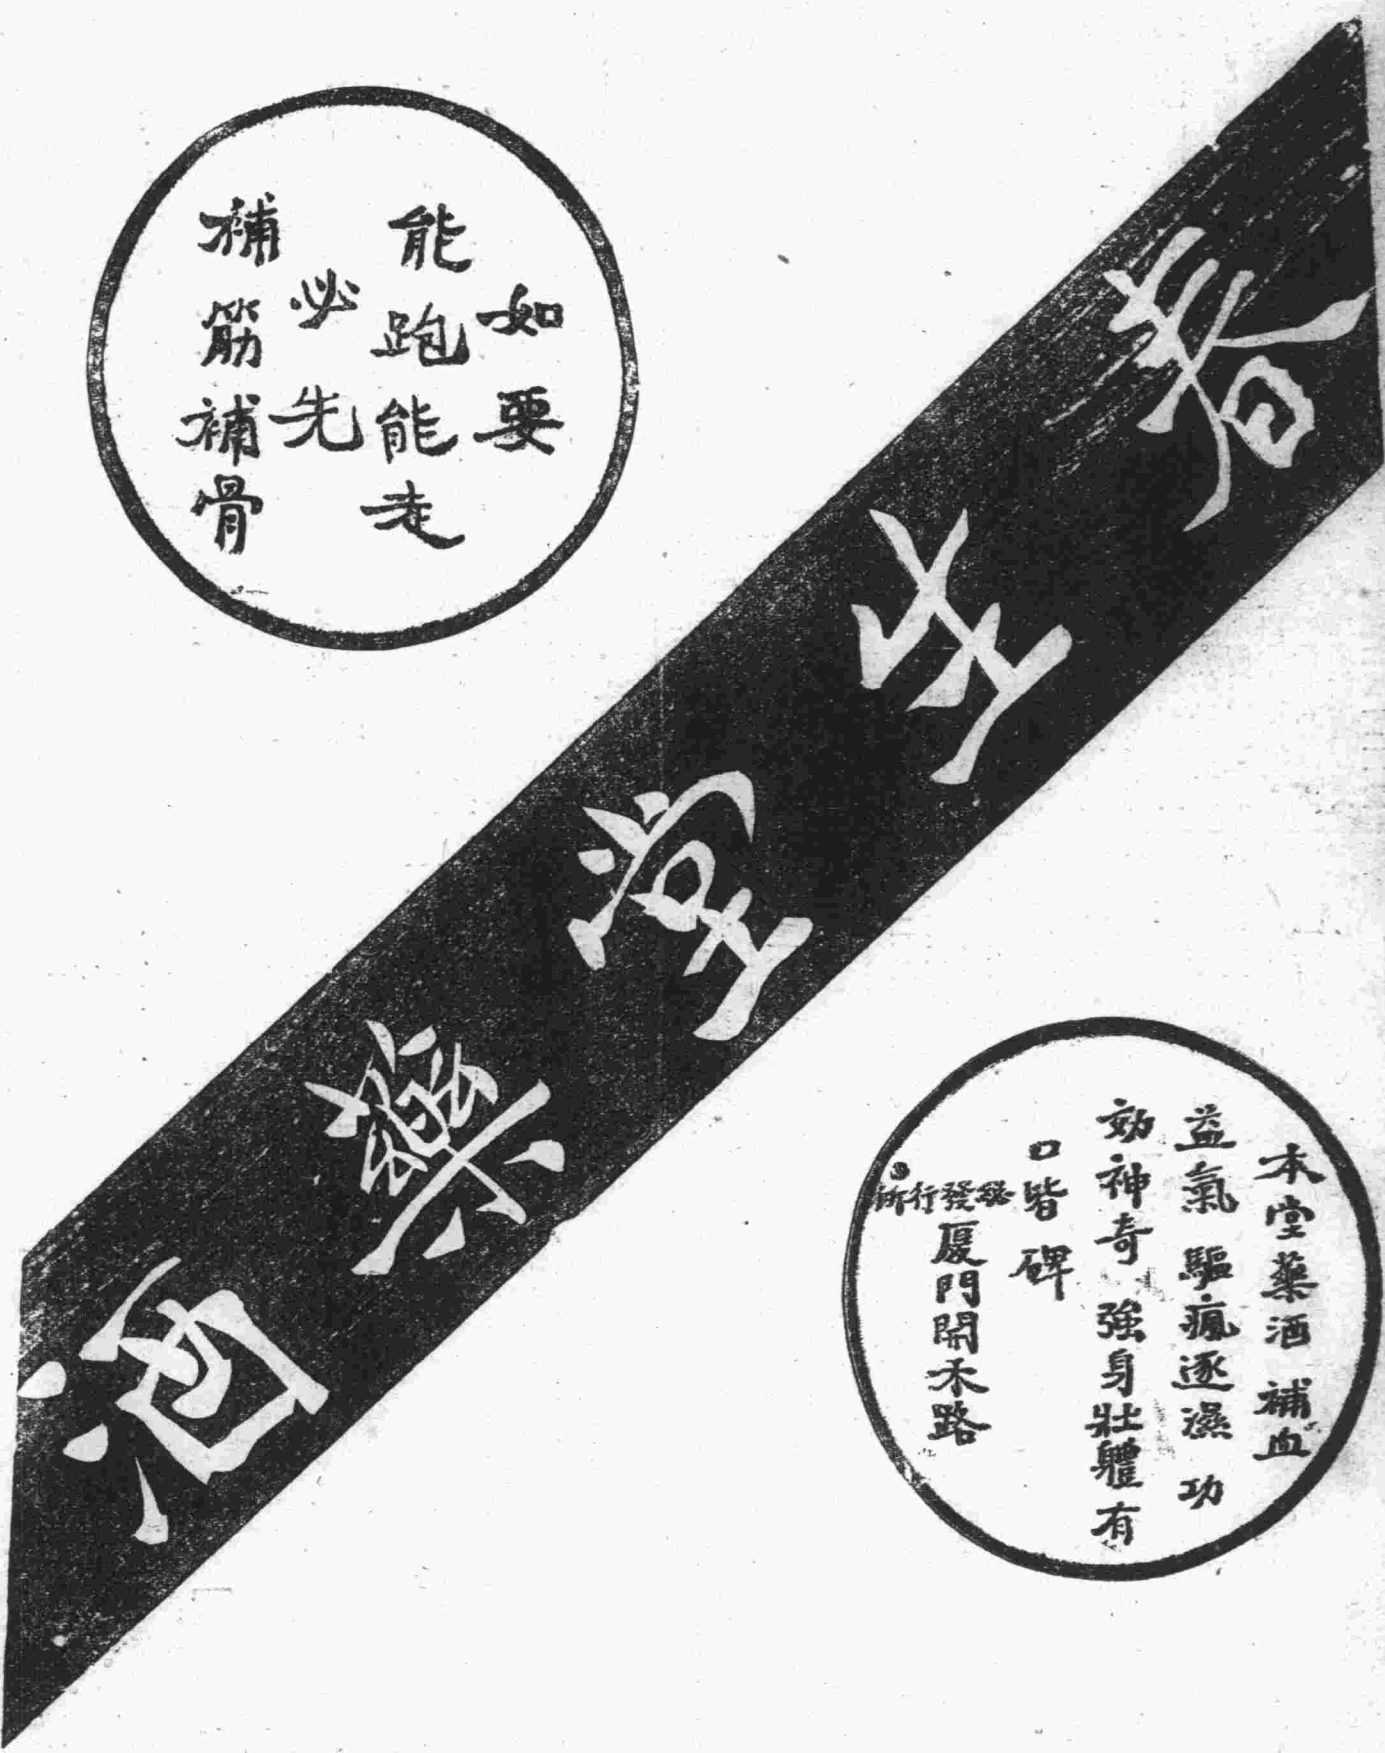 春生堂藥酒
如要
能跑能走
必先
補筋補骨
本堂藥酒補血
益氣驅瘋逐濕功
効神奇強身壯體有
口皆碑
總發行所
厦門開禾路